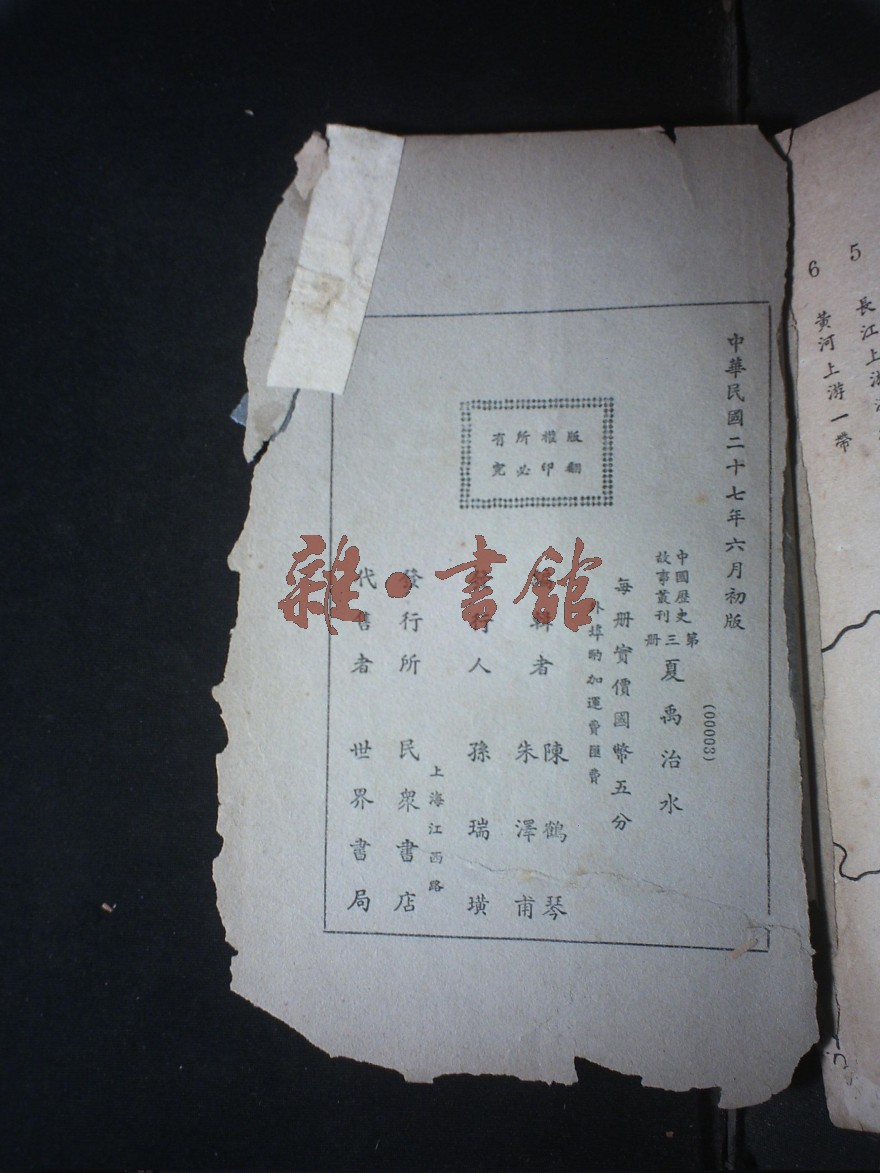 5 長江上游
6 黃河上游一帶
中華民國二十七年六月初版
中國歷史
故事叢刊
第三册
夏禹治水
(00003)
每册實價國幣五分
外埠酌加運費匯費
版權所有
翻印必究
編輯者 陳鶴琴
朱澤甫
發行人 孫瑞璜
上海江西路
發行所 民衆書店
代售者 世界書局
雜·書館